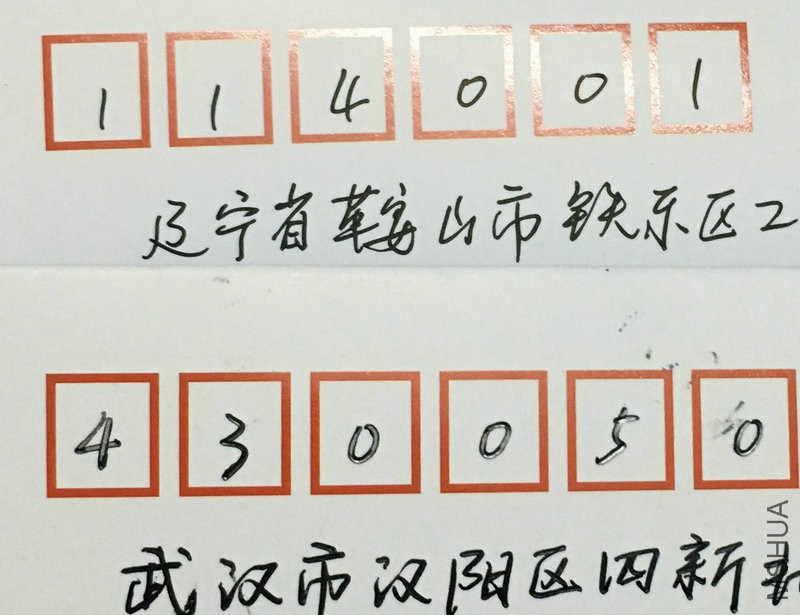 114001
辽宁省鞍山市铁东区二
430050
武汉市汉阳区四新